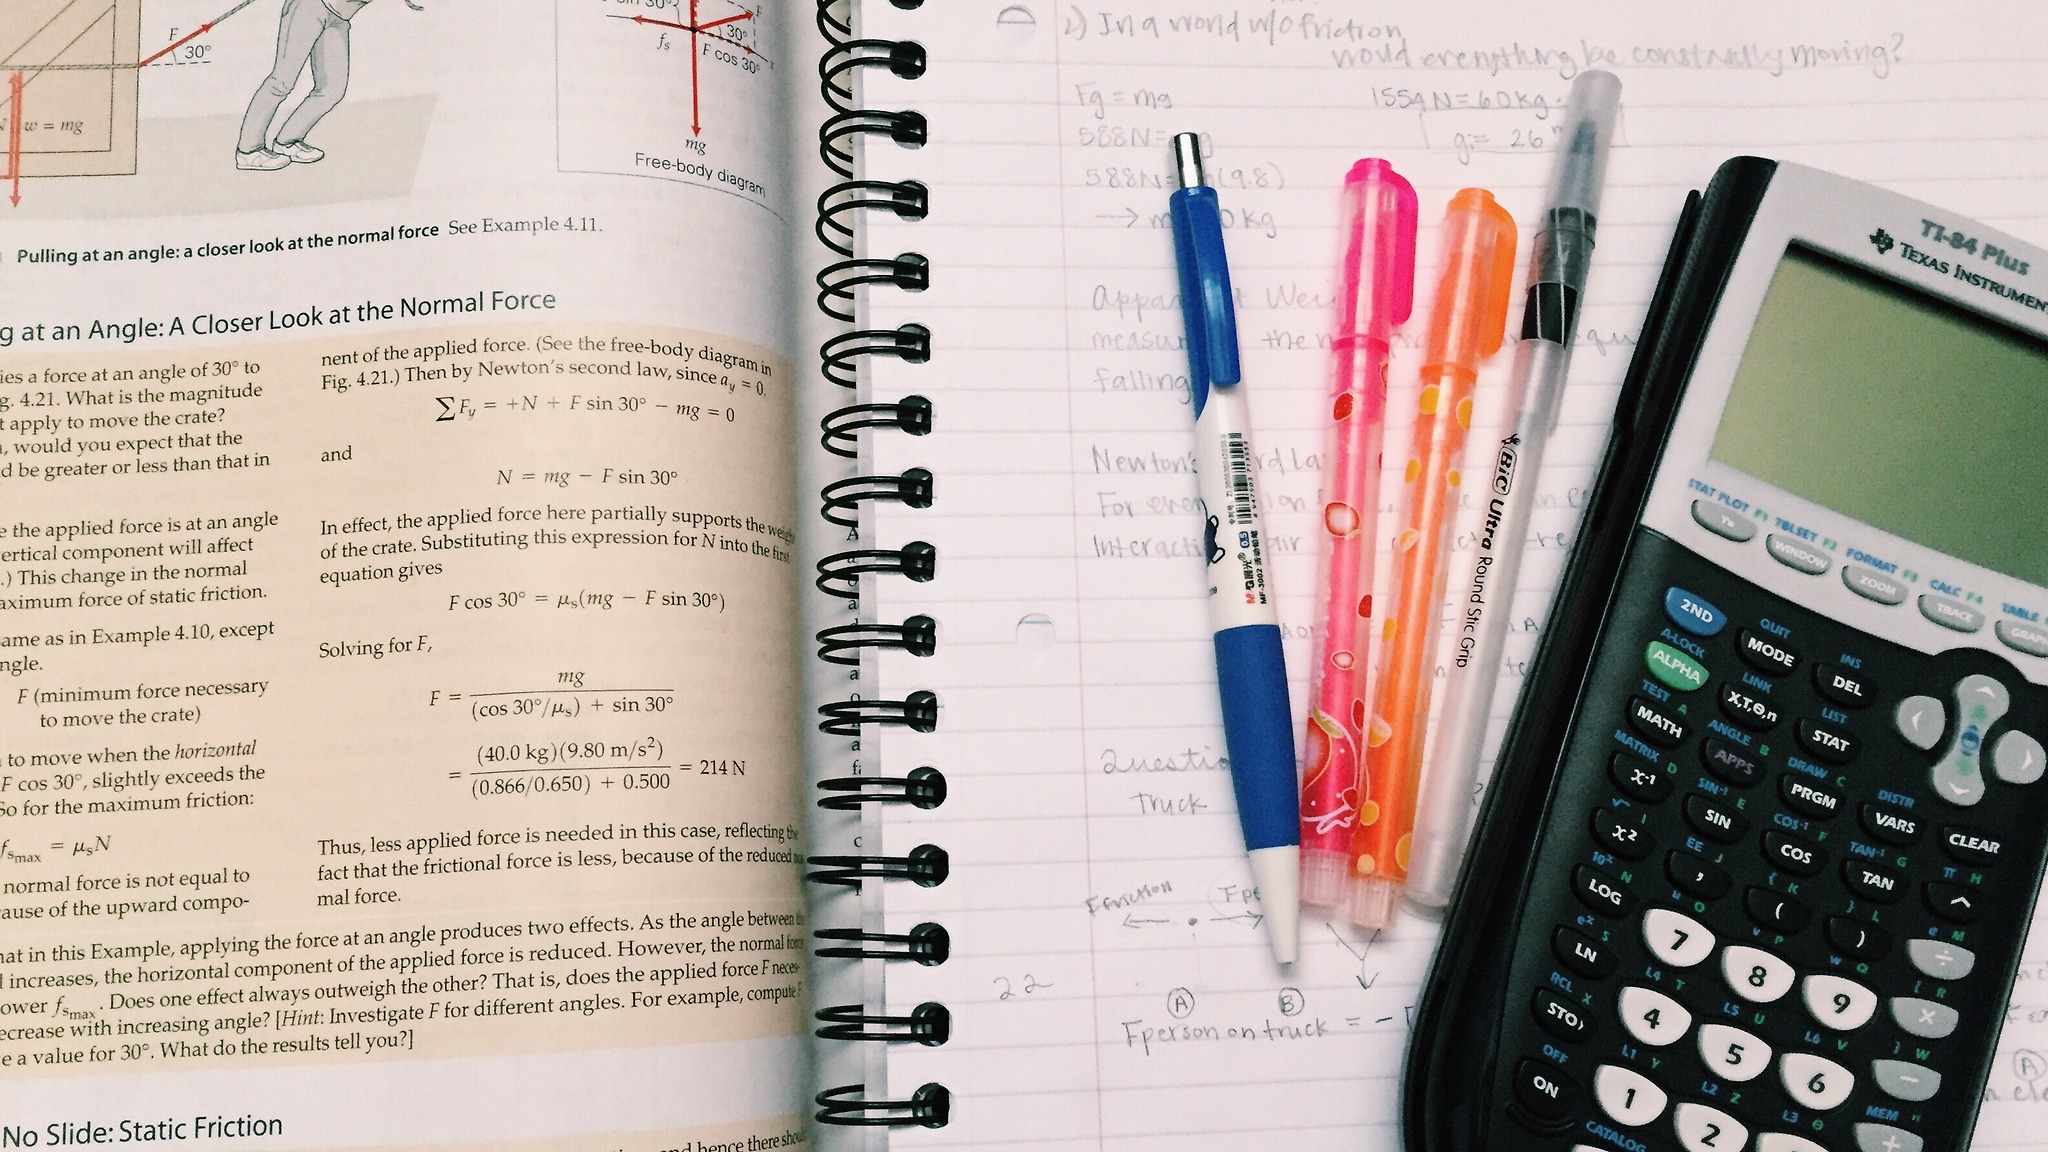 F
30°
w = mg
30°
F
fs
F cos 30°
x
mg
Free-body diagram
Pulling at an angle: a closer look at the normal force See Example 4.11.
g at an Angle: A Closer Look at the Normal Force
ies a force at an angle of 30° to
g. 4.21. What is the magnitude
t apply to move the crate?
, would you expect that the
d be greater or less than that in
e the applied force is at an angle
ertical component will affect
.) This change in the normal
aximum force of static friction.
ame as in Example 4.10, except
ngle.
F (minimum force necessary
to move the crate)
to move when the horizontal
F cos 30°, slightly exceeds the
So for the maximum friction:
fsmax = μsN
normal force is not equal to
ause of the upward compo-
nent of the applied force. (See the free-body diagram in
Fig. 4.21.) Then by Newton's second law, since ay = 0.
∑Fy = +N + F sin 30° − mg = 0
and
N = mg − F sin 30°
In effect, the applied force here partially supports the weigh
of the crate. Substituting this expression for N into the first
equation gives
F cos 30° = μs(mg − F sin 30°)
Solving for F,
F = mg / (cos 30°/μs) + sin 30°
= (40.0 kg)(9.80 m/s²) / (0.866/0.650) + 0.500 = 214 N
Thus, less applied force is needed in this case, reflecting the
fact that the frictional force is less, because of the reduced
mal force.
hat in this Example, applying the force at an angle produces two effects. As the angle between
increases, the horizontal component of the applied force is reduced. However, the normal force
ower fsmax. Does one effect always outweigh the other? That is, does the applied force F neces-
ecrease with increasing angle? [Hint: Investigate F for different angles. For example, compute F
e a value for 30°. What do the results tell you?]
No Slide: Static Friction
and hence there shou
2) In a world w/o friction
would everything be constantly moving?
Fg = mg
588N =
588N = (9.8)
→ m 0 kg
1554N = 60kg ·
g = 26
Wei
measu the
falling
Newton's rd la
For ever
Interacti
Questio
truck
Ffriction
22
A B
Fperson on truck = −
A
M&G 晨光 0.5
MF-3002 活动铅笔
BIC Ultra Round Stic Grip
TI-84 Plus
TEXAS INSTRUMEN
STAT PLOT F1 TBLSET F2 FORMAT F3 CALC F4 TABLE
Y= WINDOW ZOOM TRACE GRAPH
QUIT INS
2ND MODE DEL
A-LOCK LINK LIST
ALPHA X,T,θ,n STAT
TEST A ANGLE B DRAW C DISTR
MATH APPS PRGM VARS CLEAR
MATRIX D SIN⁻¹ E COS⁻¹ F TAN⁻¹ G π H
x⁻¹ SIN COS TAN ^
√ I EE J { K } L e M
x² , ( ) ÷
10ˣ N u O v P w Q [ R
LOG 7 8 9 ×
eˣ S L4 T L5 U L6 V ] W
LN 4 5 6 −
RCL X L1 Y L2 Z L3 θ MEM "
STO› 1 2 +
OFF CATALOG
ON